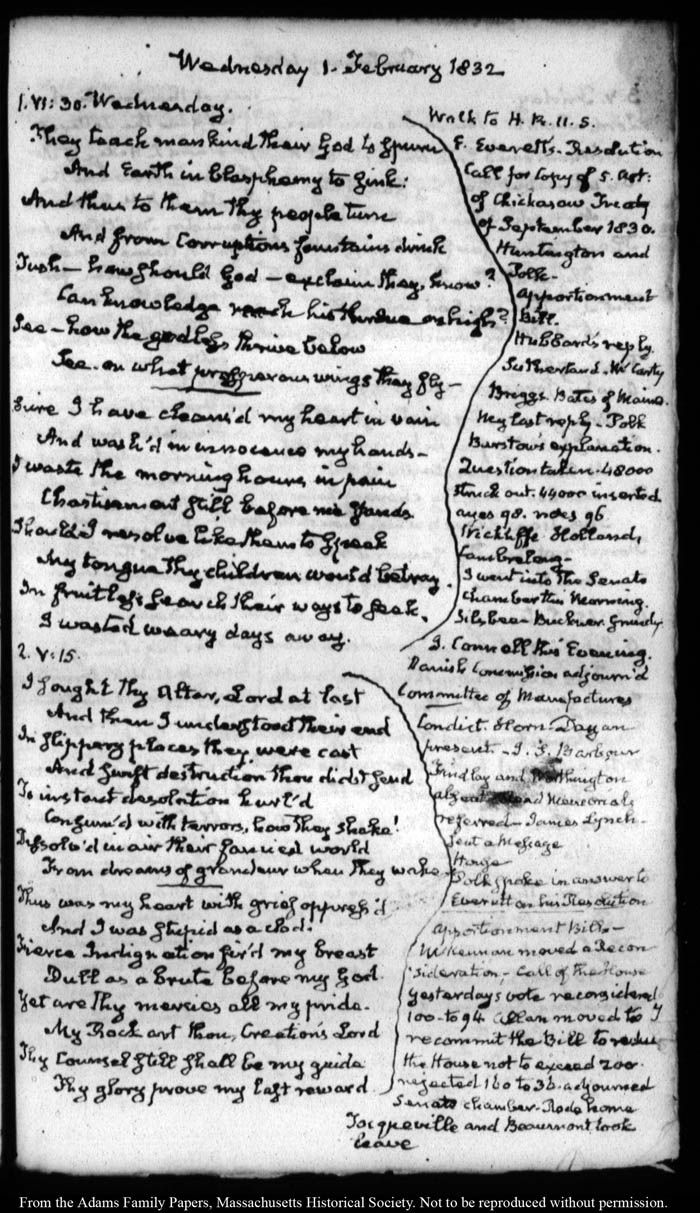 Wednesday 1. February 1832
1. VI: 30. Wednesday.
They teach mankind their God to spurn
And Earth in blasphemy to sink:
And thus to them thy people turn
And from Corruptions fountains drink
Tush — how should God — exclaim they, know?
Can knowledge reach his throne on high?
See — how the godless thrive below
See. on what prosperous wings they fly —
Sure I have cleans'd my heart in vain
And wash'd in innocence my hands —
I waste the morning hours in pain
Chastisement still before me stands.
Should I resolve like them to speak
My tongue thy children would betray.
In fruitless search their ways to seek,
I wasted weary days away.
2. V: 15.
I sought thy Altar, Lord at last
And then I understood their end
In slippery places they were cast
And swift destruction thou didst send
To instant desolation hurl'd
Consum'd with terrors, how they shake!
Dissolv'd in air their fancied world
From dreams of grandeur when they wake
Thus was my heart with grief oppress'd
And I was stupid as a clod.
Fierce Indignation fir'd my breast
Dull as a brute before my God.
Yet are thy mercies all my pride.
My Rock art thou, Creation's Lord
Thy Counsel still shall be my guide
Thy glory prove my last reward
Walk to H. R. U. S.
E. Everett's. Resolution
Call for Copy of 5. Art:
of Chickasaw Treaty
of September 1830.
Huntington and
Polk —
Apportionment
Bill.
Hubbard's reply.
Sutherland. McCarty
Briggs. Bates of Maine.
My last reply — Polk
Burstow's explanation.
Question taken. 48000
struck out. 44000 inserted
ayes 98. noes 96
Wickliffe Holland,
Cambreleng —
I went into the Senate
chamber this Morning.
Silsbee — Buckner. Grundy
J. Connell this Evening.
Danish Commission adjourn'd
Committee of Manufactures
Condict. Horn. Dayan
present. — J. S. Barbour
Findlay and Worthington
absent. Read Memorials
referred — James Lynch —
Sent a Message
House
Polk spoke in answer to
Everett on his Resolution
Apportionment Bill. —
McKennan moved a Recon
sideration — Call of the House
yesterdays vote reconsidered
100 to 94. Allan moved to
recommit the Bill to reduce
the House not to exceed 200.
rejected 160 to 32. adjourned
Senate chamber. Rode home
Tocqueville and Beaumont took
leave
From the Adams Family Papers, Massachusetts Historical Society. Not to be reproduced without permission.